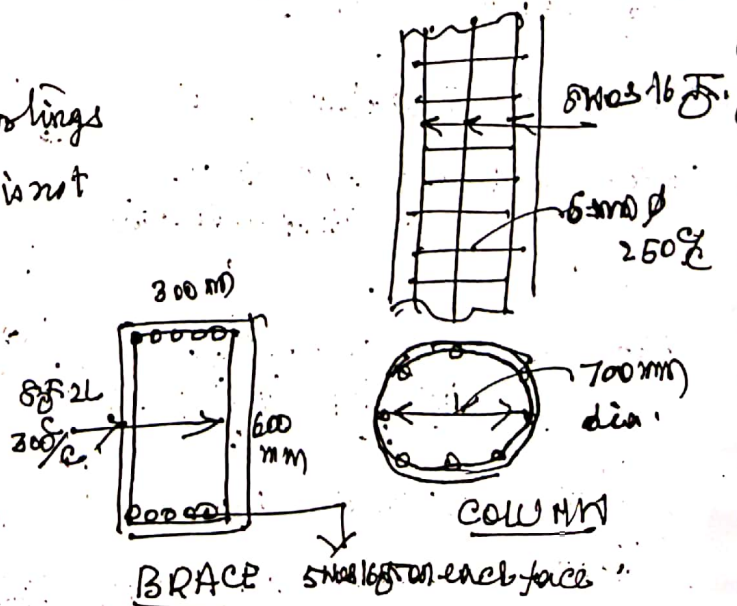 lings
is not
8 nos 16 Ŧ.
6 mm Ø
250 c/c
300 m
8 Ŧ 2L
300 c/c
600
mm
700 mm
dia.
COLUMN
BRACE. 5 Nos 16 Ŧ on each face